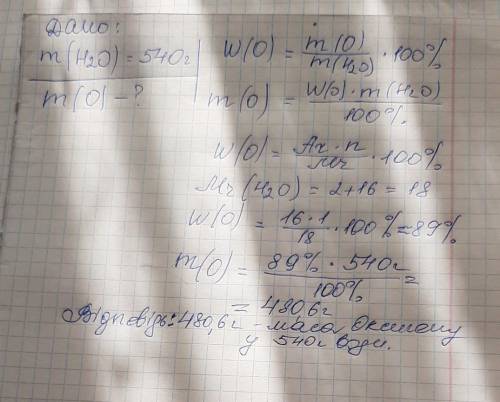 Дано:
m(H2O) = 540г
m(O) - ?
W(O) = m(O) / m(H2O) · 100%
m(O) = W(O) · m(H2O) / 100%.
W(O) = Ar · n / Mr · 100%
Mr(H2O) = 2+16 = 18
W(O) = 16·1 / 18 · 100% = 89%
m(O) = 89% · 540г / 100% =
= 480,6г
Відповідь: 480,6г - маса Оксигену
у 540г води.